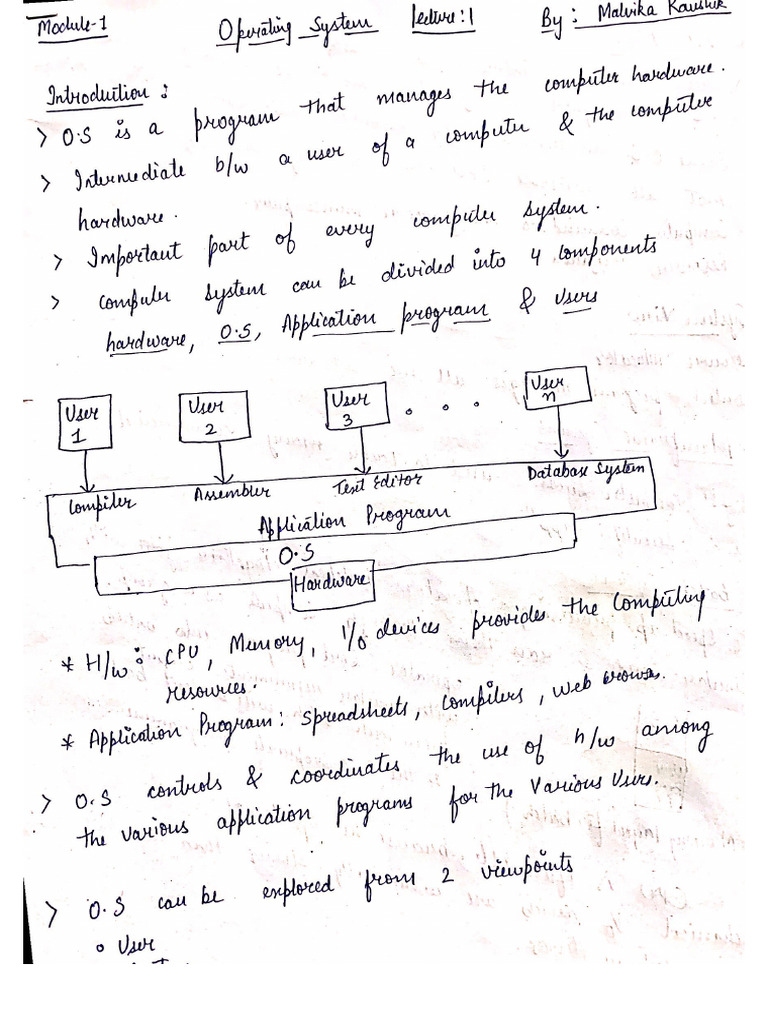 Module-1 Operating System Lecture:1 By: Malvika Kaushik
Introduction:
> O.S is a program that manages the computer hardware.
> Intermediate b/w a user of a computer & the computer
hardware.
> Important part of every computer system.
> computer system can be divided into 4 components
hardware, O.S, Application program & Users
User 1 User 2 User 3 . . . User n
Compiler Assembler Text Editor Database System
Application Program
O.S
Hardware
* H/w: CPU, Memory, I/O devices provides the Computing
resources.
* Application Program: Spreadsheets, Compilers, web
> O.S controls & coordinates the use of h/w among
the various application programs for the various Users.
> O.S can be explored from 2 viewpoints
o User